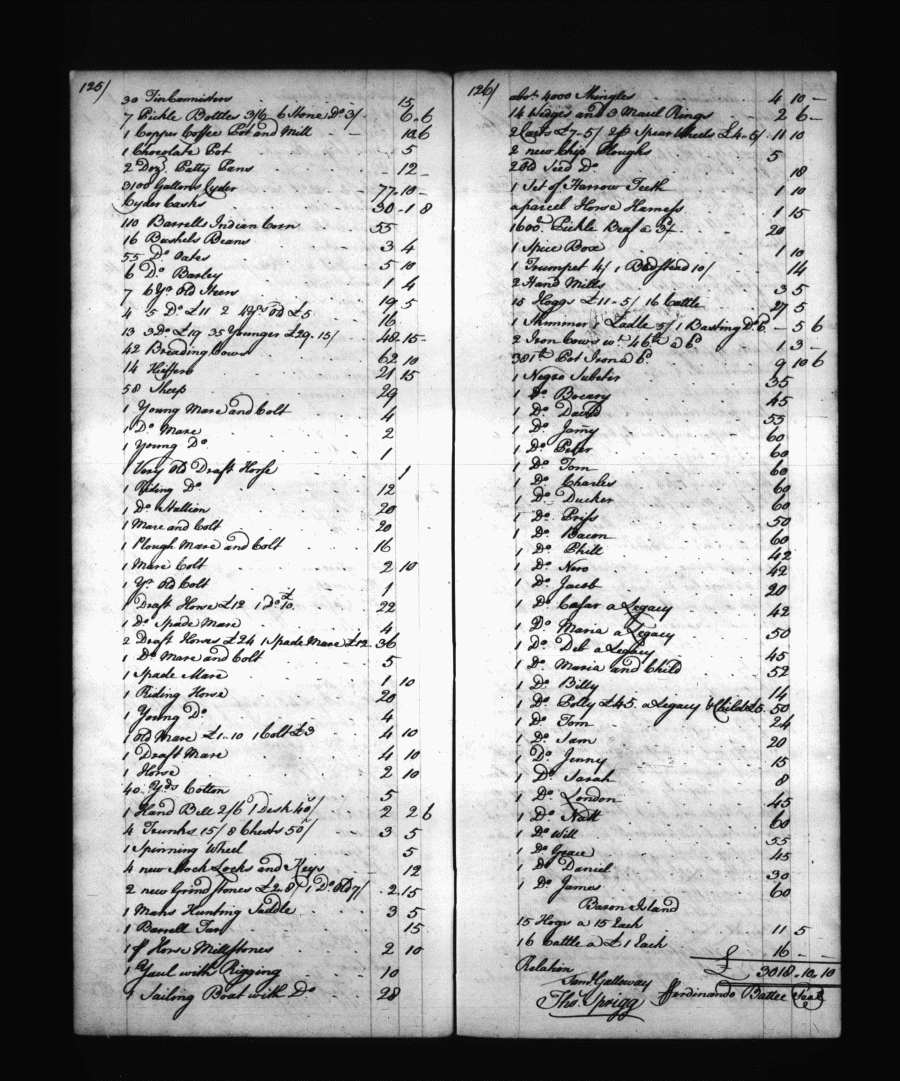 125/
30 Tin Cannisters 15
7 Pickle Bottles 3/6 6 Stone Do 3/ 6 6
1 Copper Coffee Pot and Mill 12 6
1 Chocolate Pot 5
2 Doz Patty Pans 12
3100 Gallons Cyder 77 10
Cyder Casks 30 1 8
110 Barrells Indian Corn 55
16 Bushels Beans 3 4
55 Do Oates 5 10
6 Do Barley 1 4
7 6 Yr Old Steers 19 5
4 5 Do £11 2 4 Yrs Old £5 16
13 3 Do £19 35 Younger £29.15/ 48 15
42 Breading Cows 62 10
14 Heiffers 21 15
58 Sheep 29
1 Young Mare and Colt 4
1 Do Mare 2
1 Young Do 1
1 Very Old Draft Horse 1
1 Riding Do 12
1 Do Stallion 20
1 Mare and Colt 20
1 Plough Mare and Colt 16
1 Mare Colt 2 10
1 Yr Old Colt 1
1 Draft Horse £12 1 Do £10 22
1 Do Spade Mare 4
2 Draft Horses £24 1 Spade Mare £12 36
1 Do Mare and Colt 5
1 Spade Mare 1 10
1 Riding Horse 20
1 Young Do 4
1 Old Mare £1-10 1 Colt £3 4 10
1 Draft Mare 4 10
1 Horse 2 10
40 Yds Cotton 5
1 Hand Bell 2/6 1 Desk 40/ 2 2 6
4 Trunks 15/ 8 Chests 50/ 3 5
1 Spinning Wheel 5
4 new Stock Locks and Keys 12
2 new Grindstones £2.8/ 1 Do Old 7/ 2 15
1 Mans Hunting Saddle 3 5
1 Barrell Tarr 15
1 pr Horse Millstones 2 10
1 Yaul with Rigging 10
1 Sailing Boat with Do 28
126/
abot 4000 Shingles 4 10
14 Wedges and 3 Maul Rings 2 6
2 Carts £7-5/ 2 pr Spear Wheels £4-5/ 11 10
2 new Ship Ploughs 5
2 Old Seed Do 18
1 Set of Harrow Teeth 1 10
a parcel Horse Harness 1 15
1600 Pickle Beaf a 3d 20
1 Spice Box 1 10
1 Trumpet 4/ 1 Bedstead 10/ 14
2 Hand Mills 3 5
15 Hoggs £11-5/ 16 Cattle 27 5
1 Skimmer 1 Ladle 5/ 1 Basting Do 6 5 6
2 Iron Cows wt 46 lb a 6d 1 3
381 lb Pot Iron a 6d 9 10 6
1 Negro Jubiter 35
1 Do Boccary 45
1 Do David 55
1 Do Jamy 60
1 Do Peter 60
1 Do Tom 60
1 Do Charles 60
1 Do Ducker 60
1 Do Priss 50
1 Do Bacon 60
1 Do Phill 42
1 Do Nero 42
1 Do Jacob 20
1 Do Cæsar a Legacy 42
1 Do Maria a Legacy 50
1 Do Deb a Legacy 45
1 Do Maria and Child 52
1 Do Billy 14
1 Do Polly £45 a Legacy & Child £5 50
1 Do Tom 24
1 Do Sam 20
1 Do Jenny 15
1 Do Sarah 8
1 Do London 45
1 Do Natt 60
1 Do Will 55
1 Do Grace 45
1 Do Daniel 30
1 Do James 60
Baron Island
15 Hogs a 15 Each 11 5
16 Cattle a £1 Each 16
£ 3018 10 10
Relation
Saml Galloway
Thos Sprigg Ferdinando Battee Seal